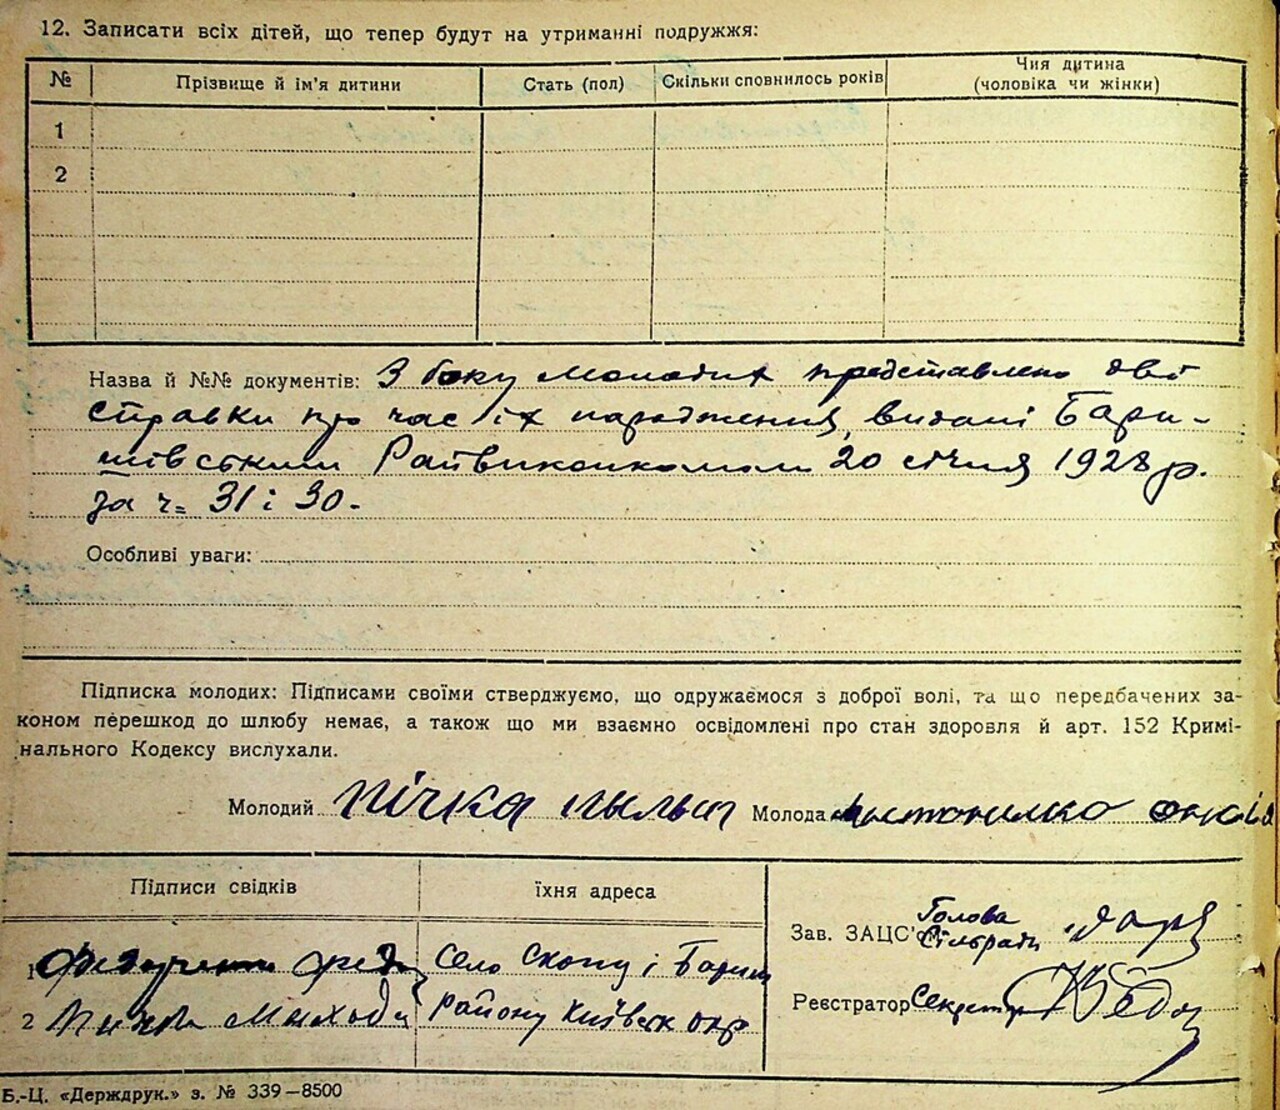 12. Записати всіх дітей, що тепер будут на утриманні подружжя:
№ Прізвище й ім'я дитини Стать (пол) Скільки сповнилось років Чия дитина
(чоловіка чи жінки)
1
2
Назва й №№ документів: З боку молодих представлено дві
справки про час їх народження, видані Бари-
шівським Райвиконкомом 20 січня 1928 р.
за ч= 31 і 30.
Особливі уваги:
Підписка молодих: Підписами своїми стверджуємо, що одружаємося з доброї волі, та що передбачених за-
коном перешкод до шлюбу немає, а також що ми взаємно освідомлені про стан здоровля й арт. 152 Кримі-
нального Кодексу вислухали.
Молодий Пічка Молода
Підписи свідків їхня адреса
Зав. ЗАЦС'ом Голова
Сільради
1 Село Скопці Бариш
2 Району Київськ окр
Реєстратор Секретар
Б.-Ц. «Держдрук.» з. № 339—8500